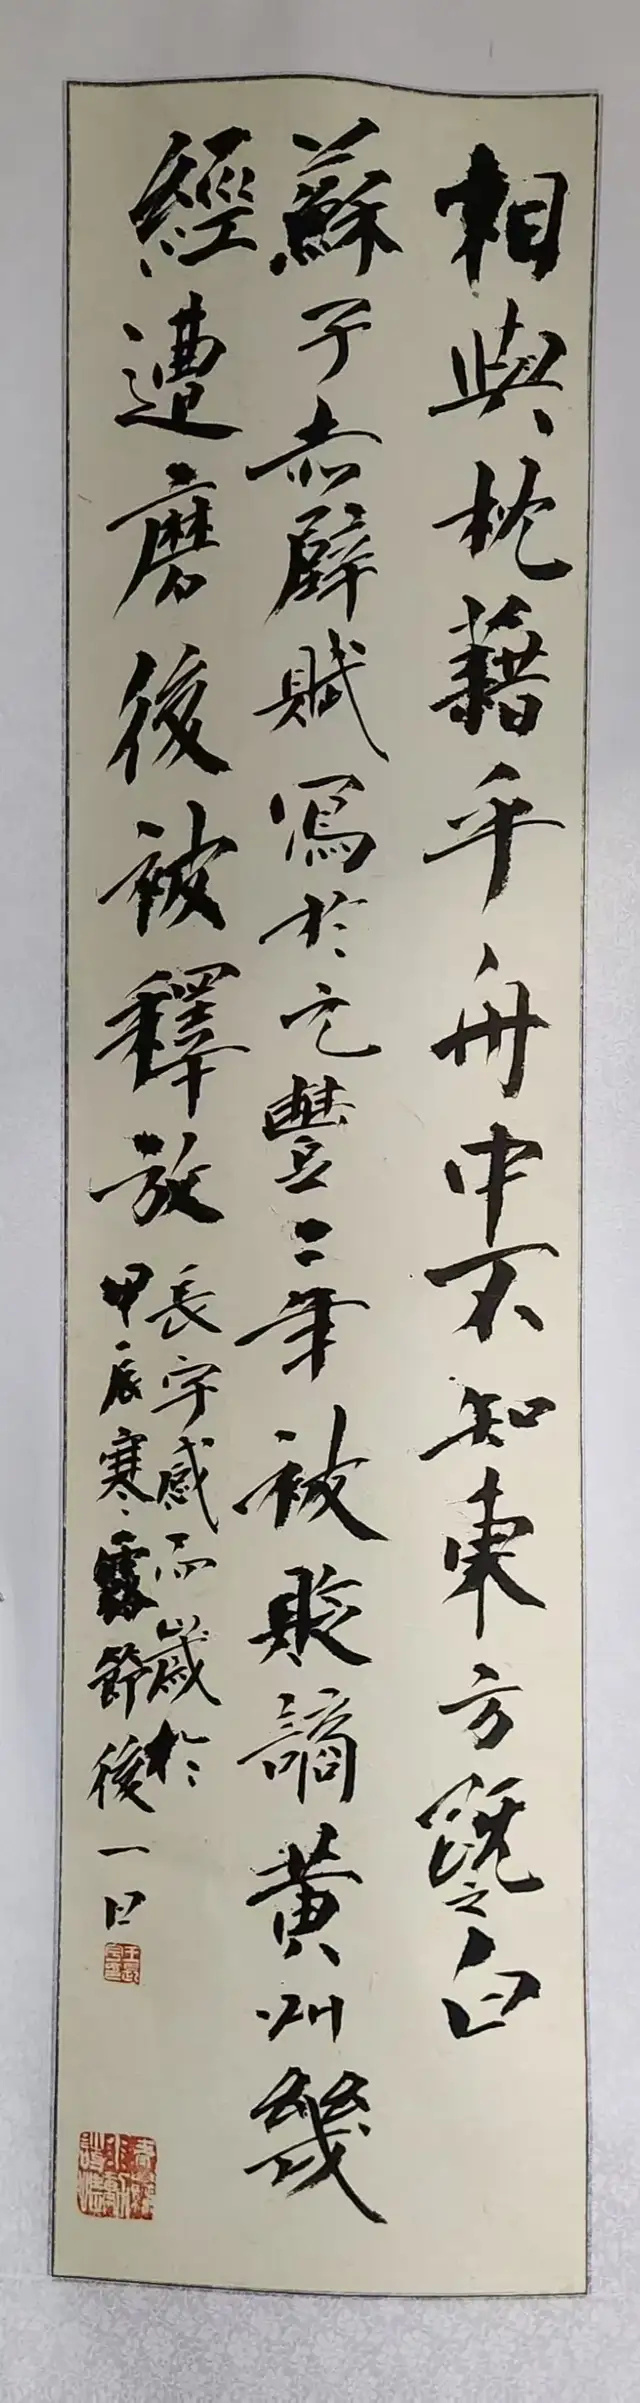 相與枕藉乎舟中不知東方既之白
蘇子赤壁賦寫於元豐二年被貶謫黃州幾
經遭磨後被釋放
長宇感而歲於
甲辰寒露節後一日